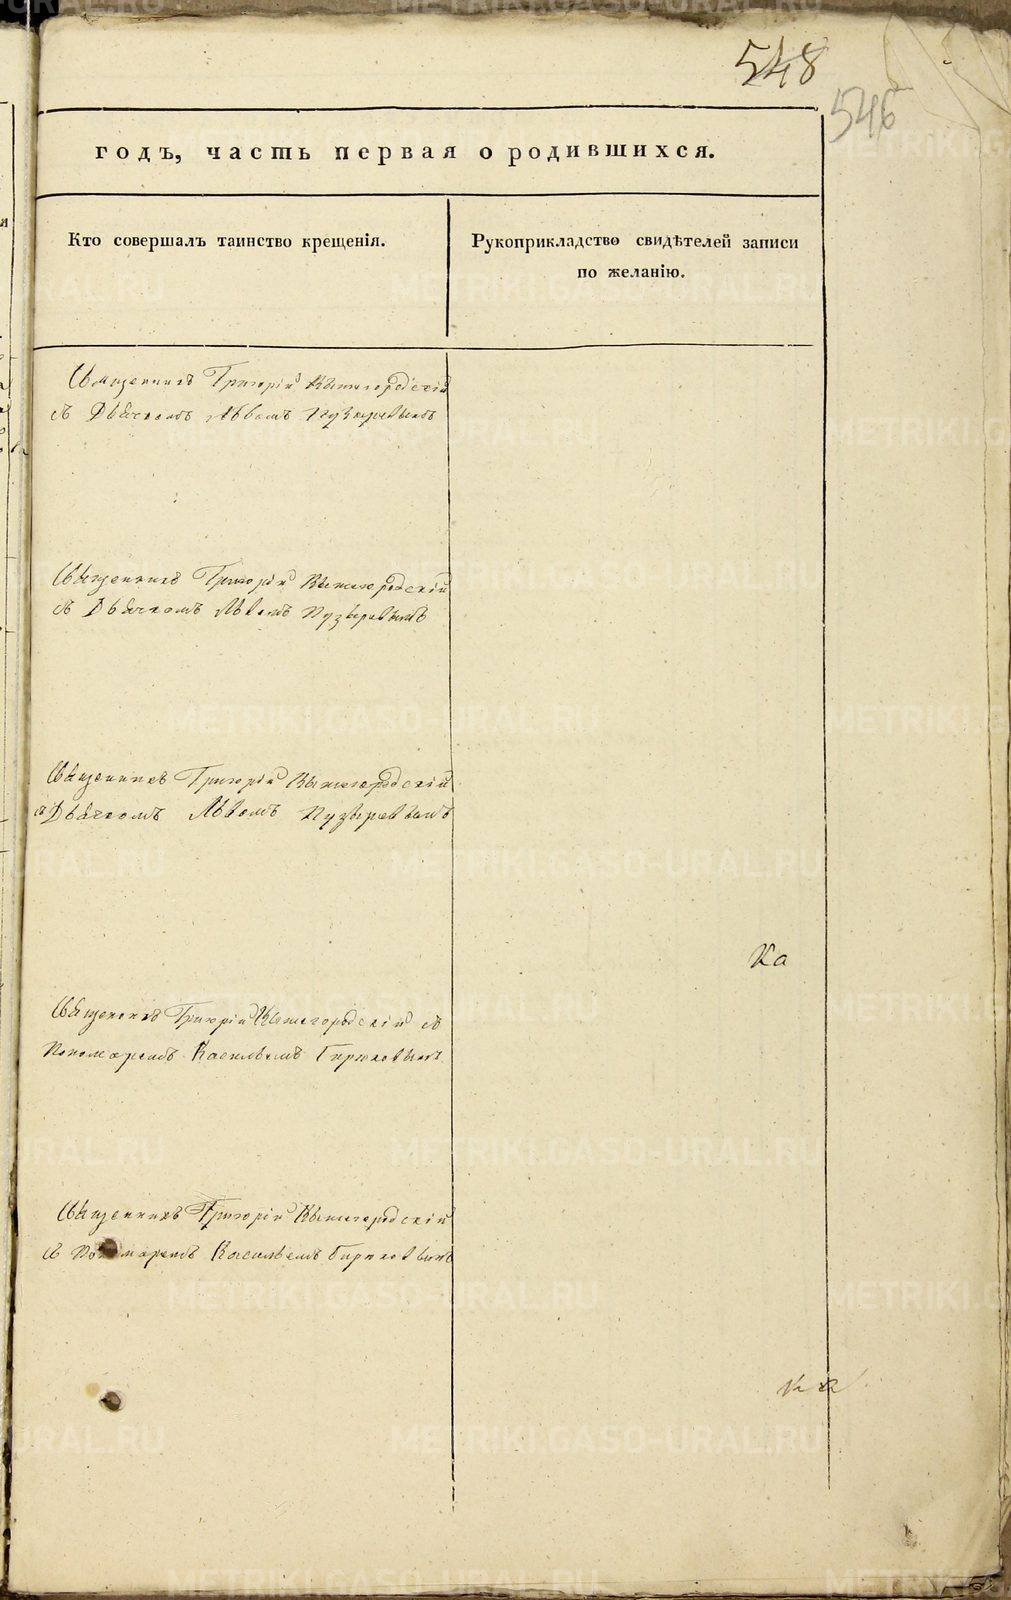 548
546
годъ, часть первая о родившихся.
Кто совершалъ таинство крещенія.
Рукоприкладство свидѣтелей записи
по желанію.
Священникъ Григорій Вышегородскій
съ Дьячкомъ Львомъ Пузыревымъ
Священникъ Григорій Вышегородскій
съ Дьячкомъ Львомъ Пузыревымъ
Священникъ Григорій Вышегородскій
съ Дьячкомъ Львомъ Пузыревымъ
Ка
Священникъ Григорій Вышегородскій съ
Пономаремъ Васильемъ Бирюковымъ
Священникъ Григорій Вышегородскій
съ Пономаремъ Васильемъ Бирюковымъ
METRIKI.GASO-URAL.RU